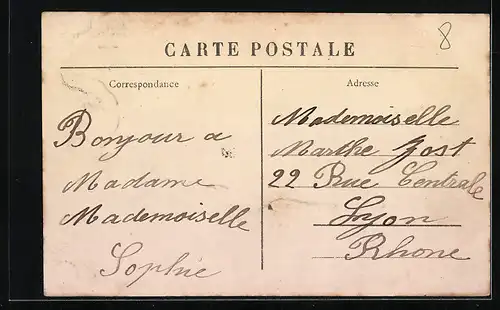 8
CARTE POSTALE
Correspondance
Bonjour a
Madame
Mademoiselle
Sophie
Adresse
Mademoiselle
Marthe Jost
22 Rue Centrale
Lyon
Rhone